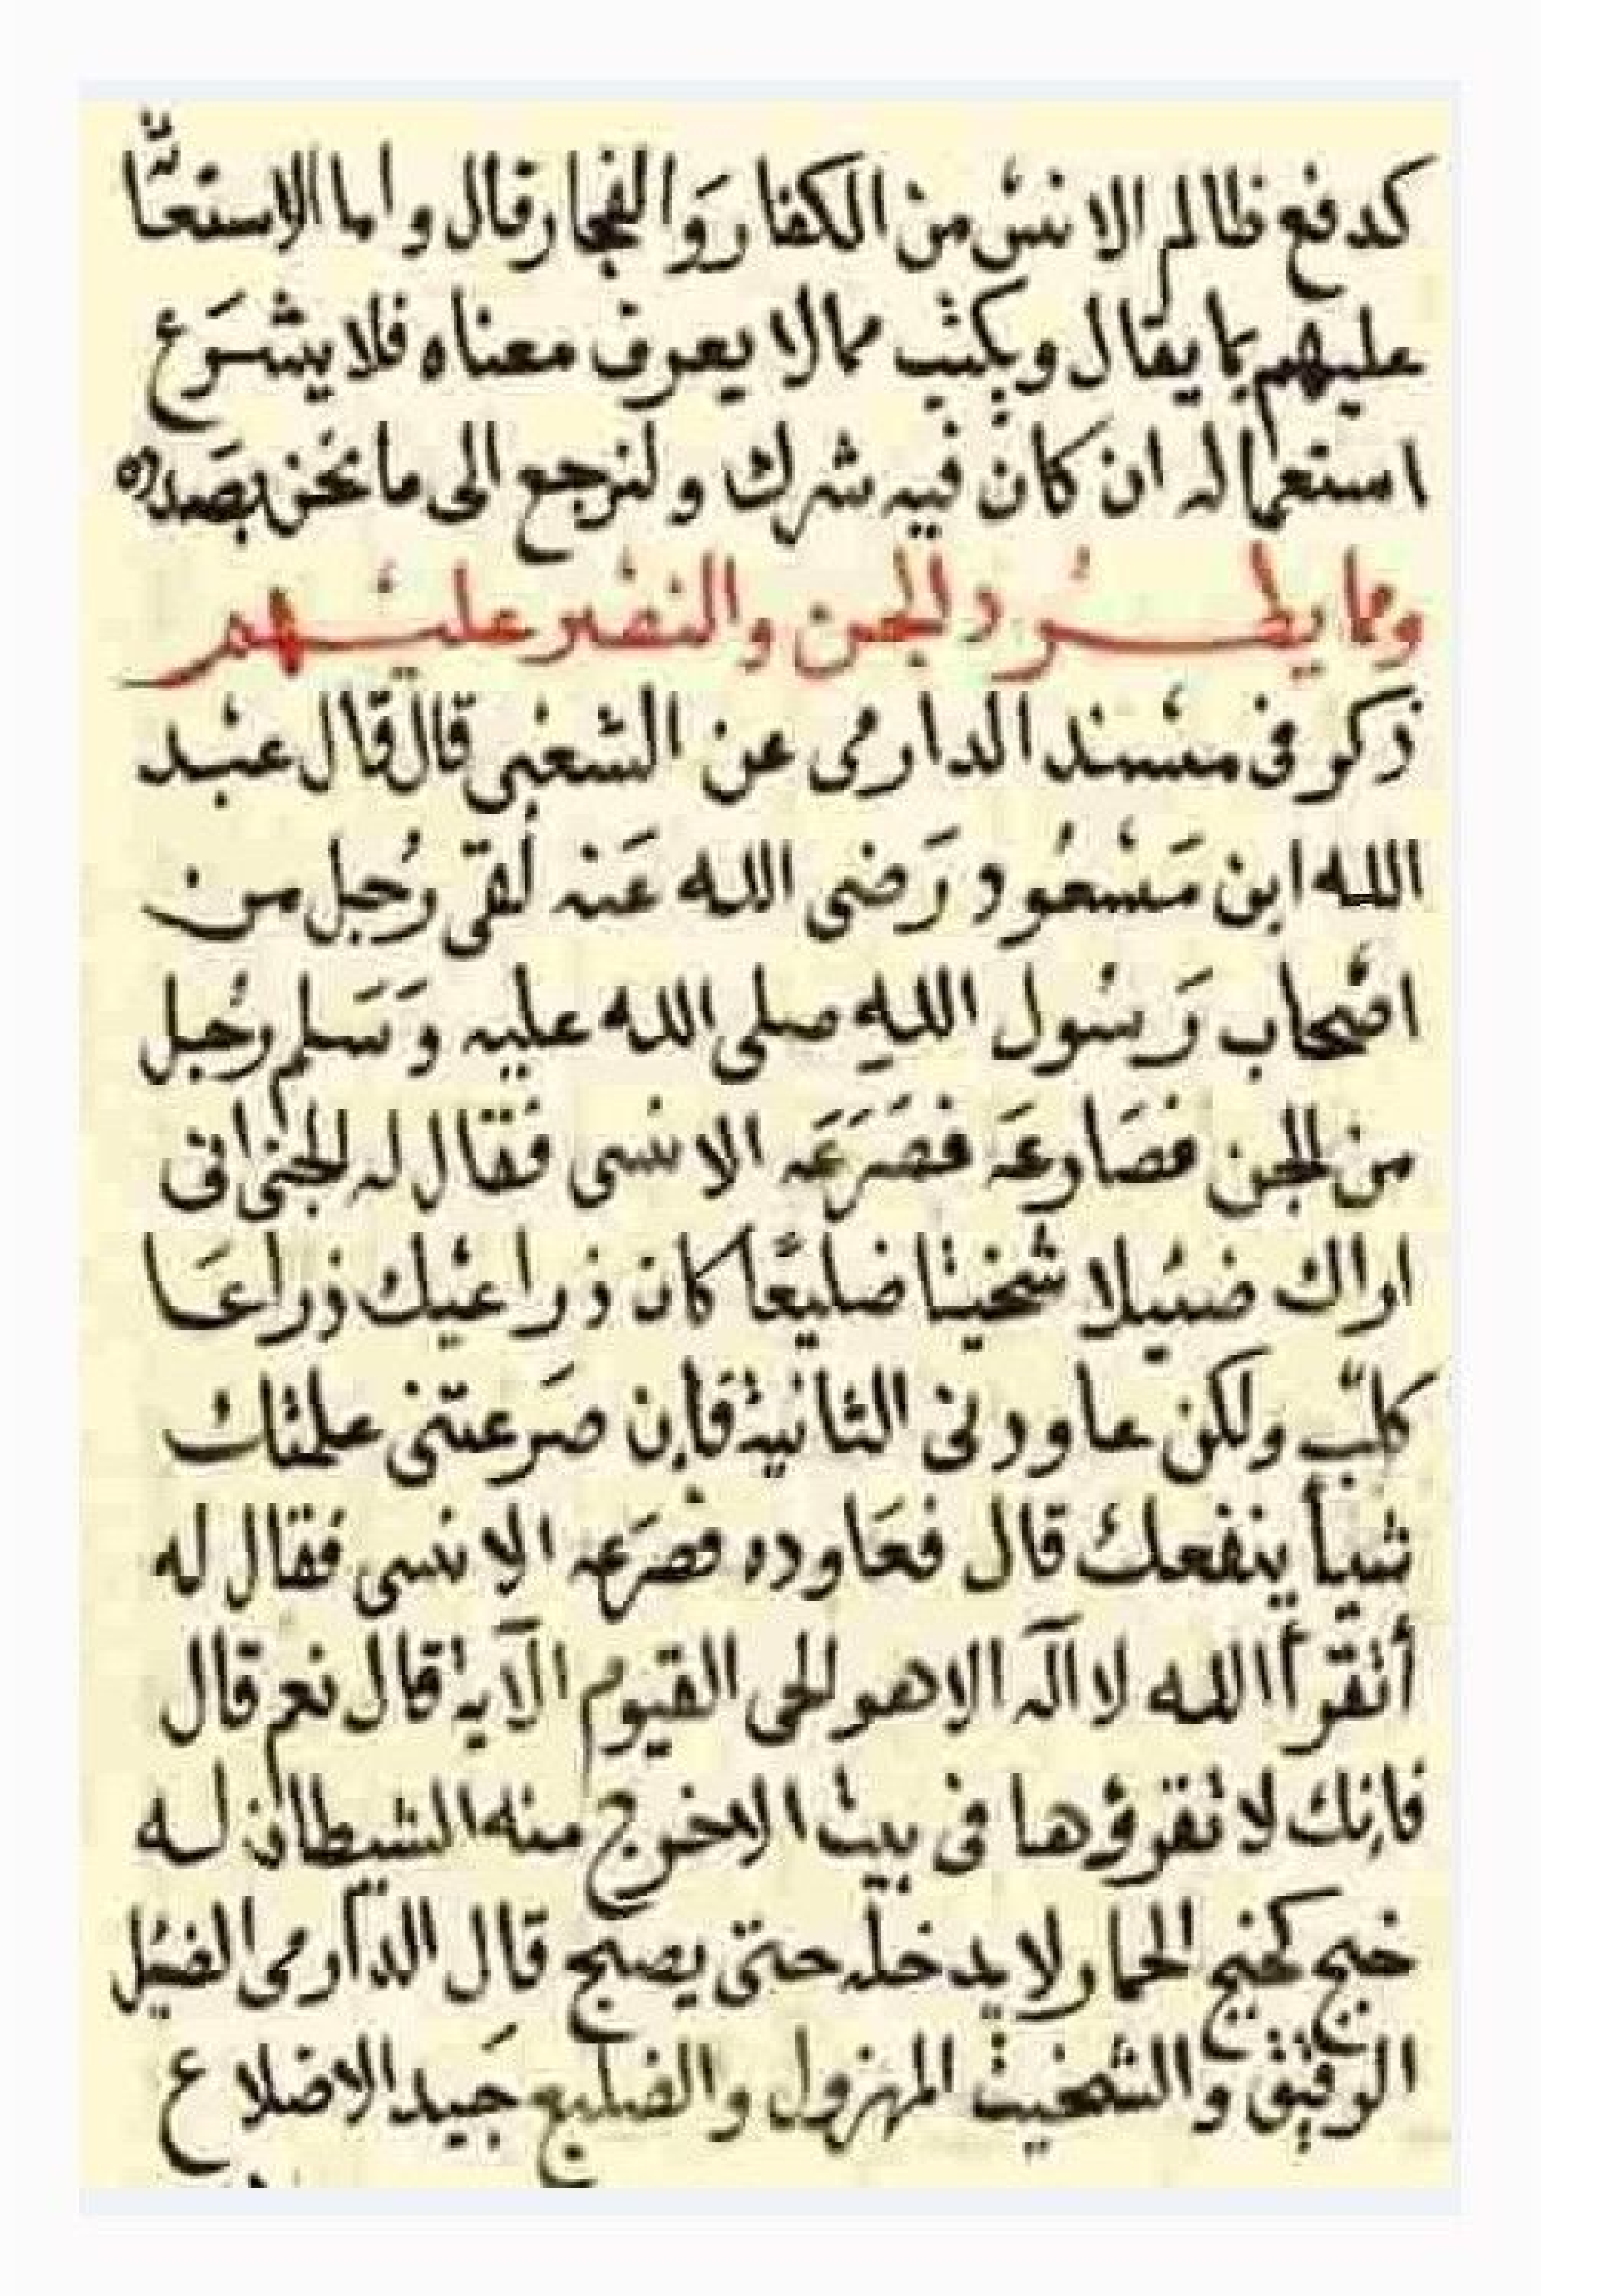 كدفع ظالم الانس من الكفار وَالفجار قال واما الاستعا
عليهم بما يقال ويكتب مما لا يعرف معناه فلا يشرَع
استعماله ان كان فيه شرك ولنرجع الى ما نحن بصَدده
ومما يطرد الجن والنصر عليهم
ذكر فى مسند الدارمى عن الشعبى قال قال عبد
الله ابن مَسْعُود رَضى الله عَنه لقى رجُل من
اصْحاب رَسُول اللهِ صلى الله عليه وَسَلم رجُل
من الجن فصَارعَه فصَرَعَه الانسى فقال له الجنى انى
اراك ضئيلا شخيتا ضليعًا كان ذراعيك ذراعَا
كلب ولكن عاودنى الثانية فإن صَرعتنى علمتك
شيأ ينفعك قال فعَاوده فصَرعَه الانسى فقال له
أتقرأ الله لا اله الا هو الحى القيوم الآية قال نعم قال
فإنك لا تقرؤها فى بيت الا خرج منه الشيطان له
خبج كخبج الحمار لا يدخله حتى يصبح قال الدارمى الضئيل
الرقيق والشخيت المهزول والضليع جَيد الاضلاع